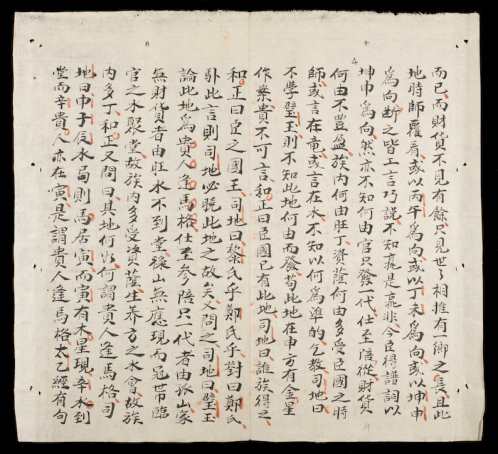 而已而財貨不見有餘只見世〻相推有一鄉之長且此
地時師覆葬或以丙午爲向或以丁未爲向或以坤申
爲向斷之皆工言巧説不知孰是孰非今臣得譜詞以
坤申爲向然亦不知何由官只發一代仕至陪從財貨
何由不豐盈族内何由旺丁資蔭何由多受臣國之時
師或言在竜或言在水不知以何爲準的乞教司地曰
不學璧玉則不知此地何由而發蓋此地在申方有金星
作案貴不可言和正曰臣國已有此地司地曰誰族得之
和正曰臣之國王司地曰黎氏乎鄭氏乎對曰鄭氏
卦此言則司地必曉此地之故矣人問之司地曰璧玉
論此地爲貴人逢馬格仕至參陪只一代者由孤山家
無財貨者由旺水不到堂祿山無應現而冠带臨
官之水聚堂故族内多受資蔭生养方之水會故族
内多丁和正又問曰其地何以謂貴人逢馬格司
地曰申子辰水局則馬居寅而寅有木星現辛水到
堂而辛貴人亦在寅是謂貴人逢馬格太乙經有句